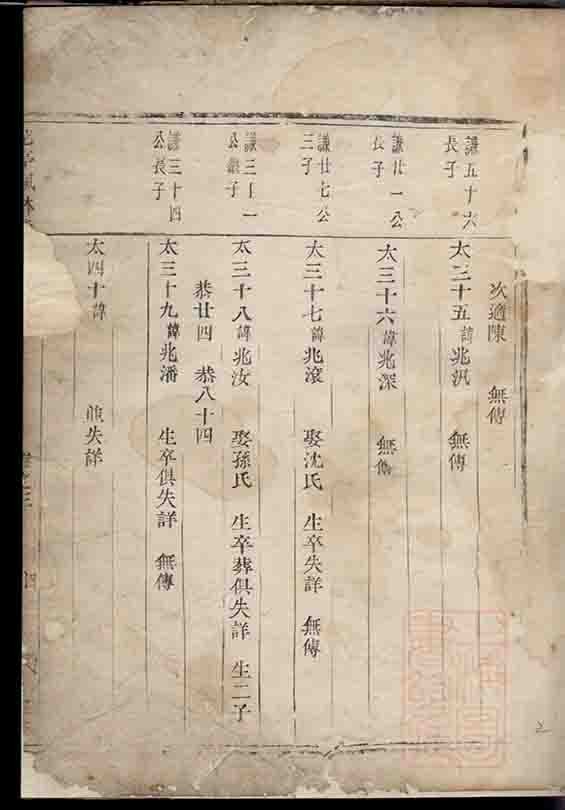 次適陳 無傳
謙五十六
長子
太三十五諱兆汎 無傳
謙廿一公
長子
太三十六諱兆深 無傳
謙廿七公
三子
太三十七諱兆滾 娶沈氏 生卒失詳 無傳
謙三十一
公 子
太三十八諱兆汝 娶孫氏 生卒葬俱失詳 生二子
恭廿四 恭八十四
謙三十四
公長子
太三十九諱兆潘 生卒俱失詳 無傳
太四十諱 俱失詳